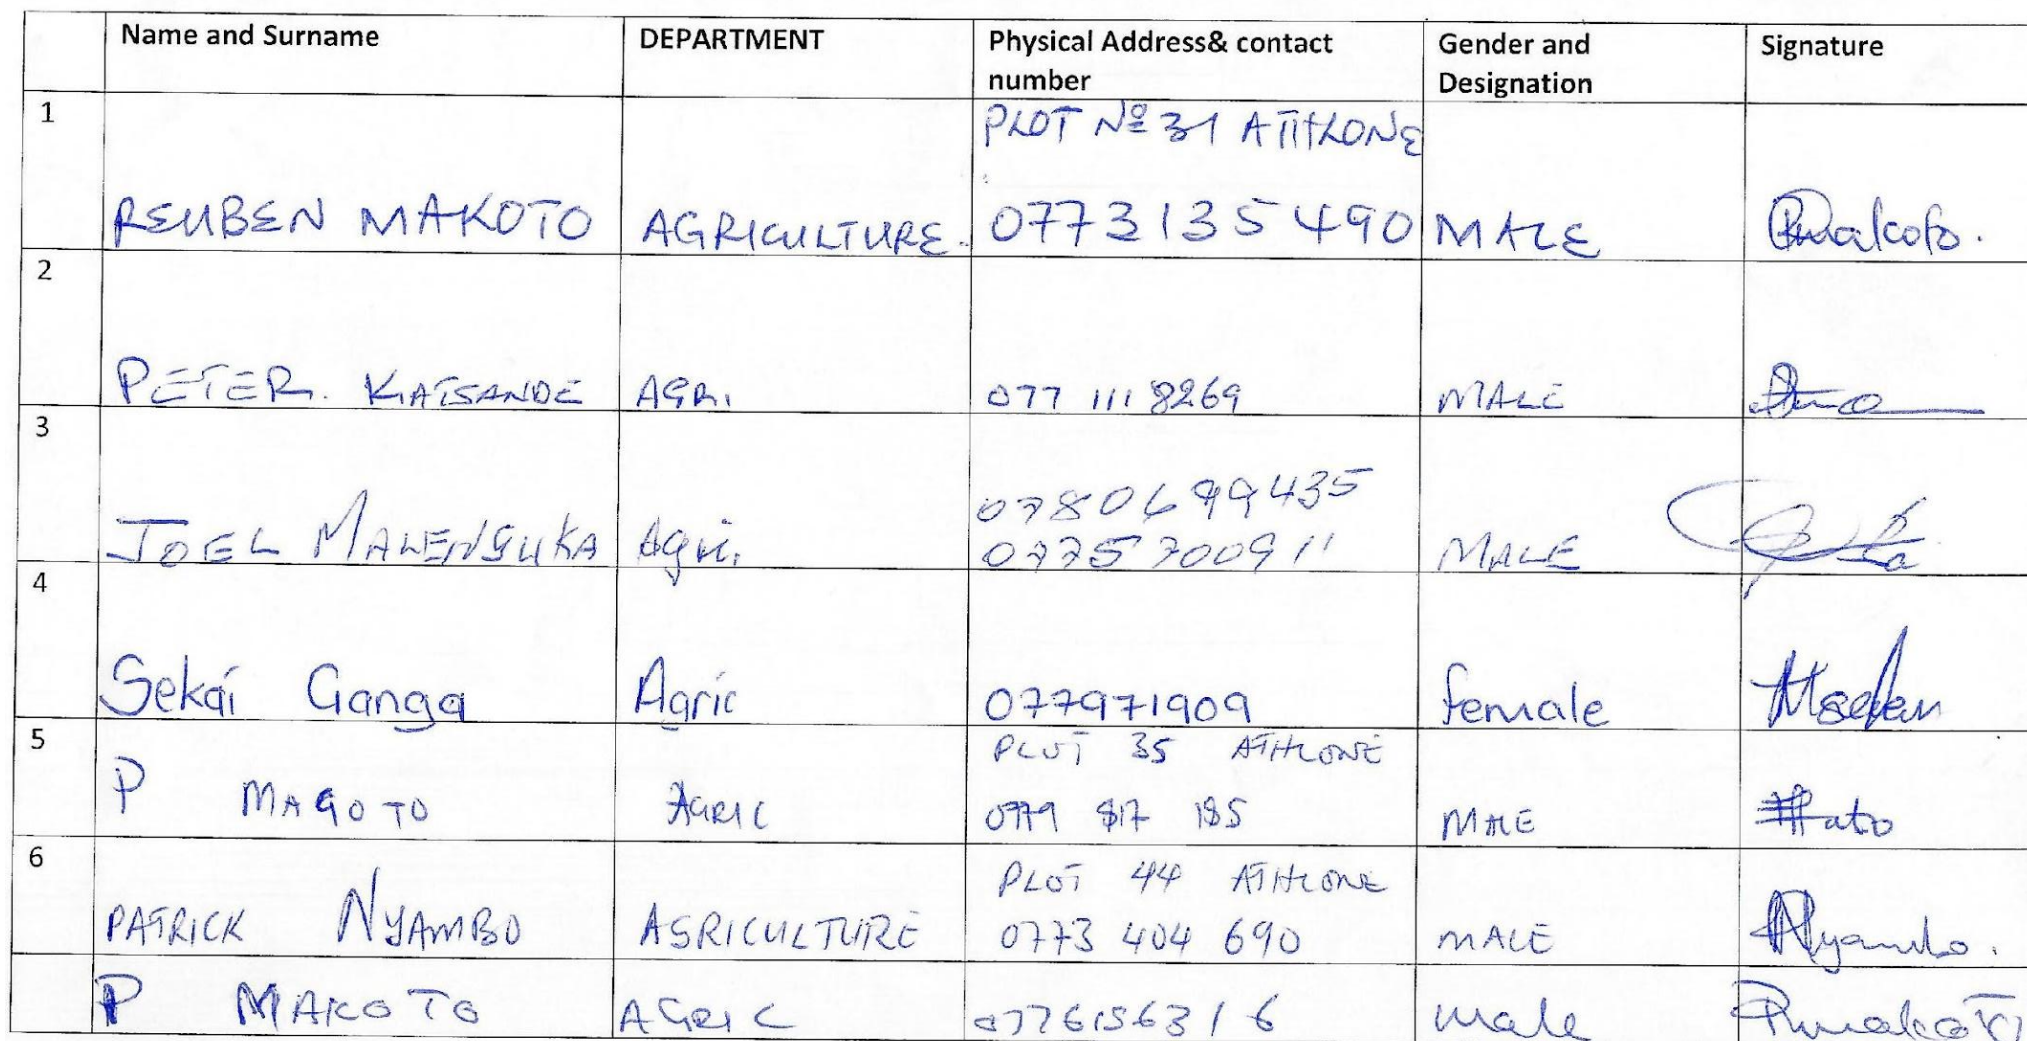 Name and Surname DEPARTMENT Physical Address& contact number Gender and Designation Signature
1 REUBEN MAKOTO AGRICULTURE. PLOT Nº 31 ATHLONE 0773135490 MALE Rmakoto.
2 PETER. KATSANDE AGRI. 077 111 8269 MALE
3 JOEL Agri. 0780699435 0775700911 MALE
4 Sekai Ganga Agric 077971909 female
5 P MAGOTO AGRIC PLOT 35 ATHLONE 0779 817 185 MALE
6 PATRICK NYAMBO AGRICULTURE PLOT 44 ATHLONE 0773 404 690 MALE PNyambo.
P MAKOTO AGRIC 0776156316 male Pmakoto